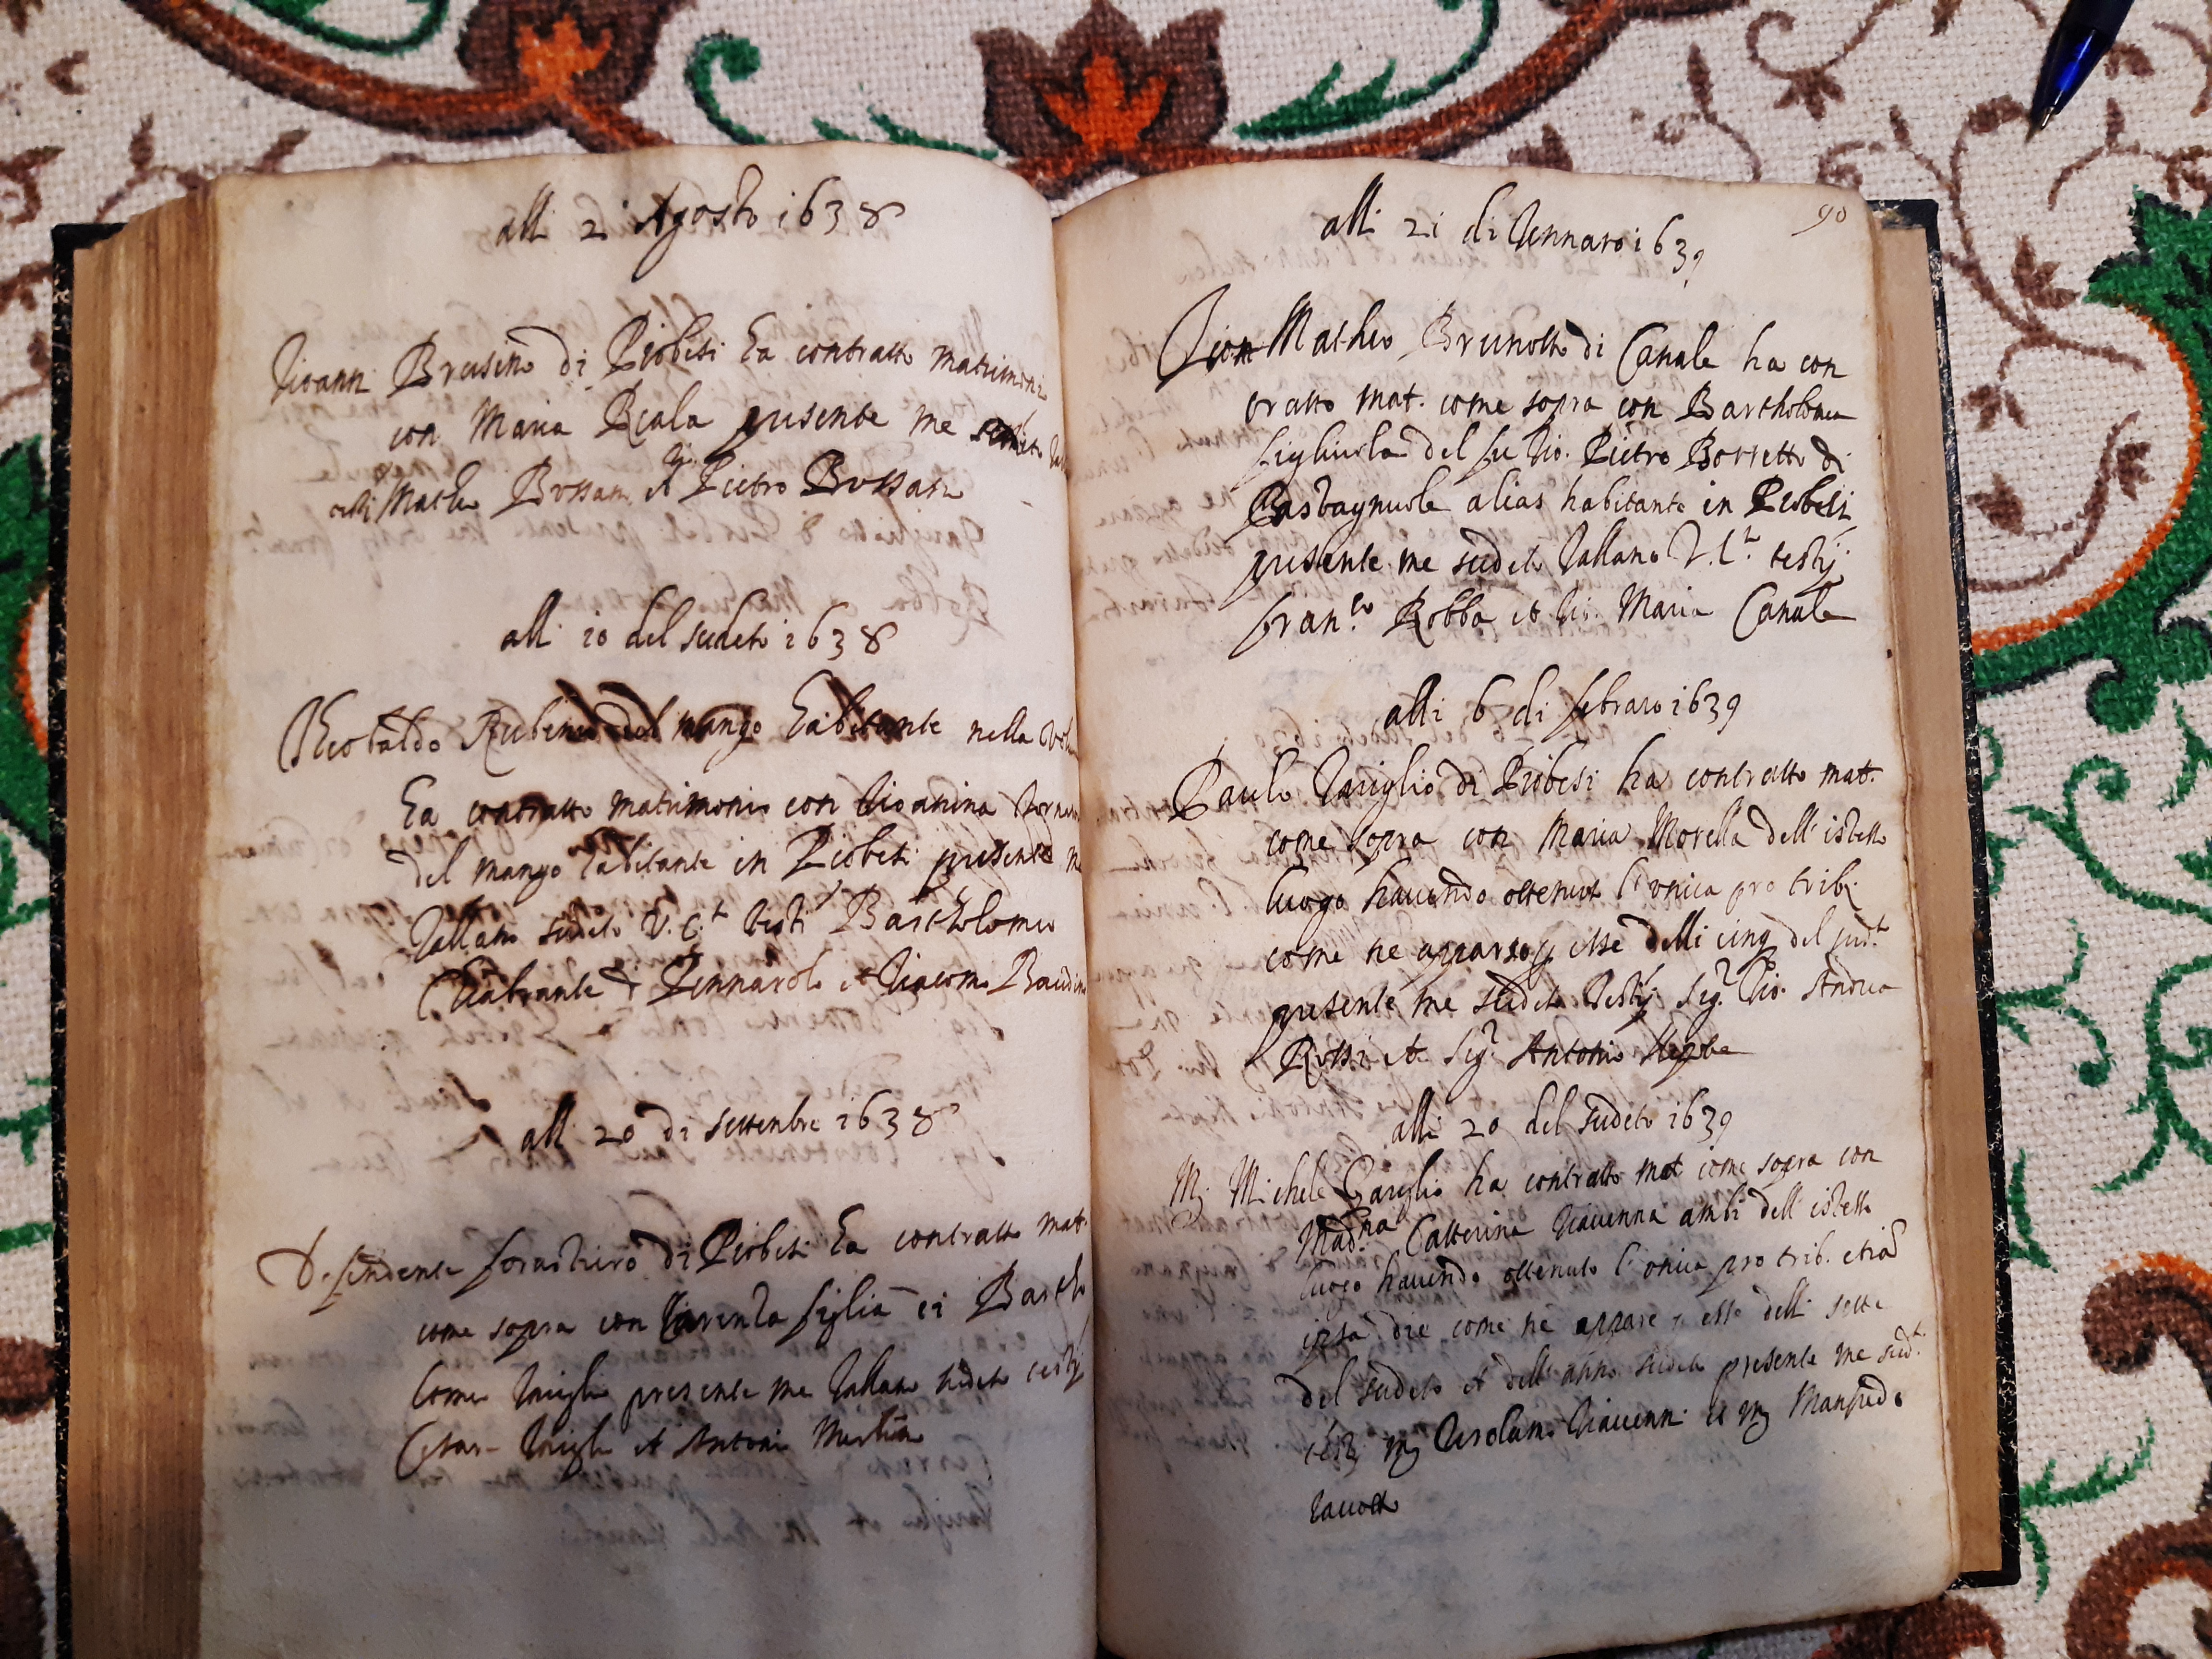 alli 2 Agosto 1638
Gioanni Brusino di Piobesi ha contratto matrimonio
con Maria Reala presente me sudeto
Matheo Bossam et Pietro Bossam
alli 10 del sudeto 1638
Theobaldo Rubino del mango habitante nella
ha contratto matrimonio con Gioanina
del mango habitante in Piobesi presente me
Vallano sudeto V. C.t testi Bartholomeo
Chiabrante di Pennarolo et Giacomo
alli 20 di settenbre 1638
Desendente forastiero di Piobesi ha contratto mat.
come sopra con figlia di Bartho
lomeo presente me Vallano sudeto testij
Cesar et Antoni
90
alli 21 di Gennaro 1639
Gion Matheo Brunotto di Canale ha con
tratto mat. come sopra con Bartholomea
figliuola del fu Gio. Pietro Borretto di
Castagniole alias habitante in Piobesi
presente me sudeto Vallano V. C.t testij
fran.co Robba et Gio. Maria Canale
alli 6 di febraro 1639
Paulo Gariglio di Piobesi ha contratto mat.
come sopra con Maria Morella dell' istesso
luogo havendo ottenuto l' onica pro trib.
come ne esse delli cinq del sud.t
presente me sudeto testij Sig.r Gio. Andrea
Rossi et Sig.r Antonio
alli 20 del sudeto 1639
M. Michele Gariglio ha contratto mat come sopra con
Mad.na Catterina Giavenna ambi dell' istesso
luogo havendo ottenuto l' onica pro trib. etia
ipsa die come ne appare esse delli sette
del sudeto et dell' anno sudeto presente me sud.t
testij m. Gerolamo Giavenni et m. Manfredo